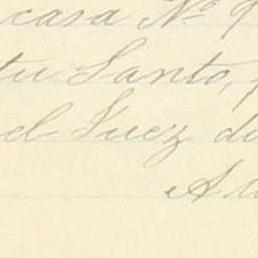 casa Nº 9
tu Santo,
el Juez di
A